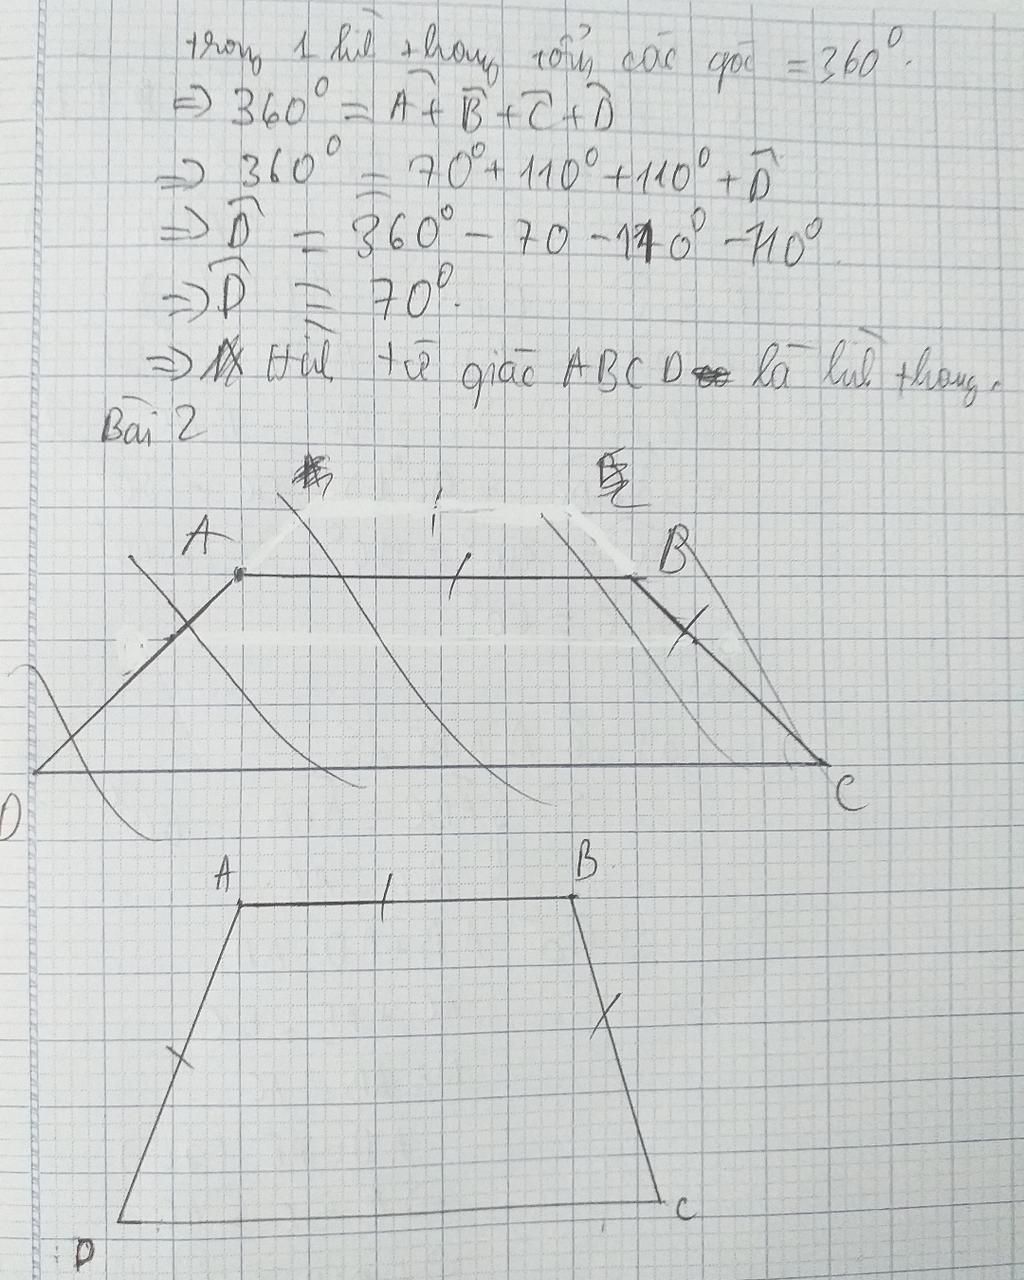 trong 1 hình thang tổng các góc = 360⁰.
=> 360⁰ = A + B + C + D
=> 360⁰ = 70⁰ + 110⁰ + 110⁰ + D
=> D = 360⁰ - 70 - 110⁰ - 110⁰
=> D = 70⁰.
=> tứ giác ABCD là hình thang.
Bài 2
A B
D C
A B
D C